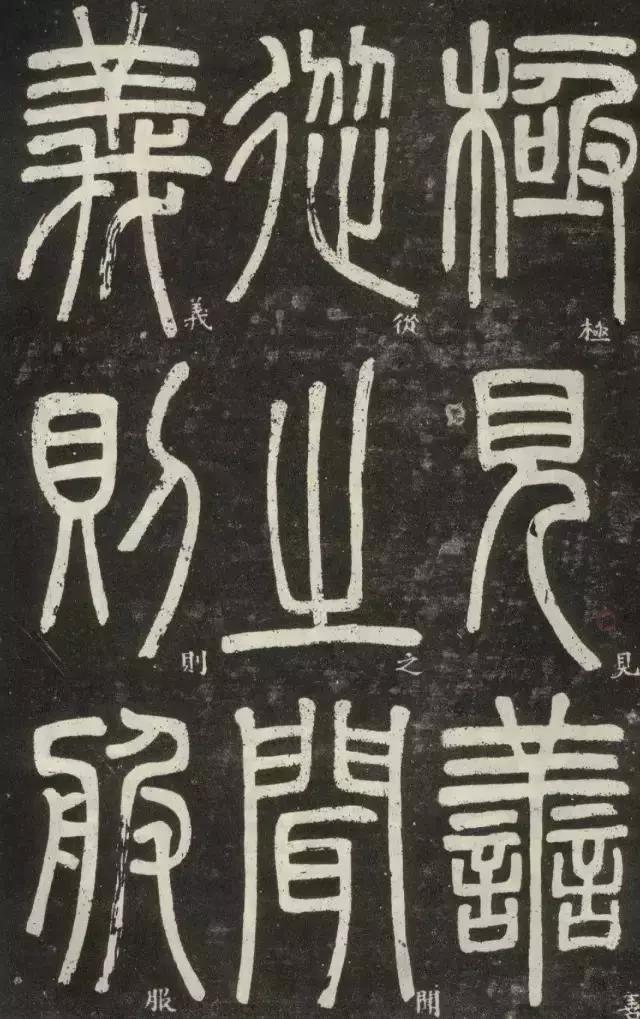 極見善
極見善
從之聞
從之聞
義則服
義則服